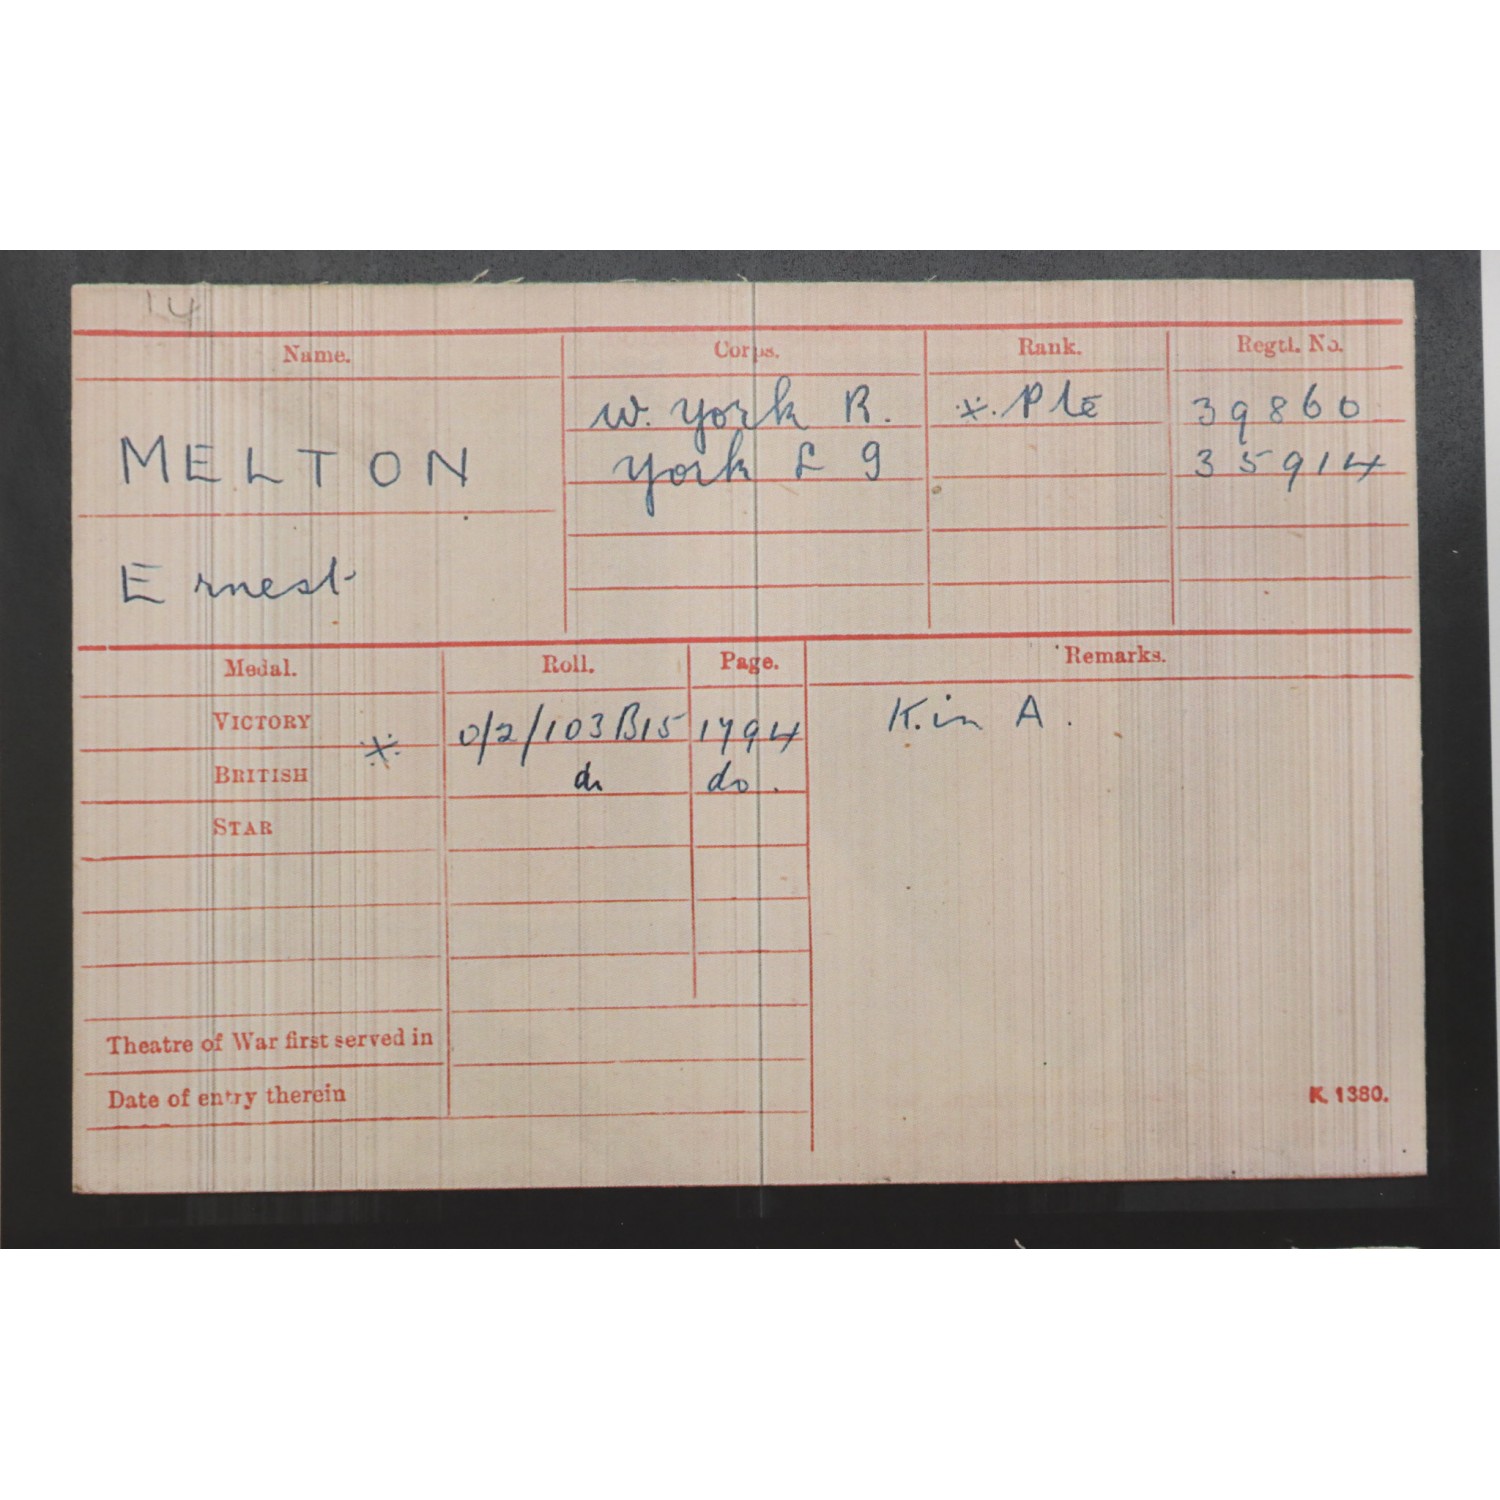 14
Name. Corps. Rank. Regtl. No.
W. York R. ※. Pte 39860
MELTON York L 9 35914
Ernest
Medal. Roll. Page. Remarks.
VICTORY ※ O/2/103B15 1794 K. in A.
BRITISH do do.
STAR
Theatre of War first served in
Date of entry therein
K. 1380.